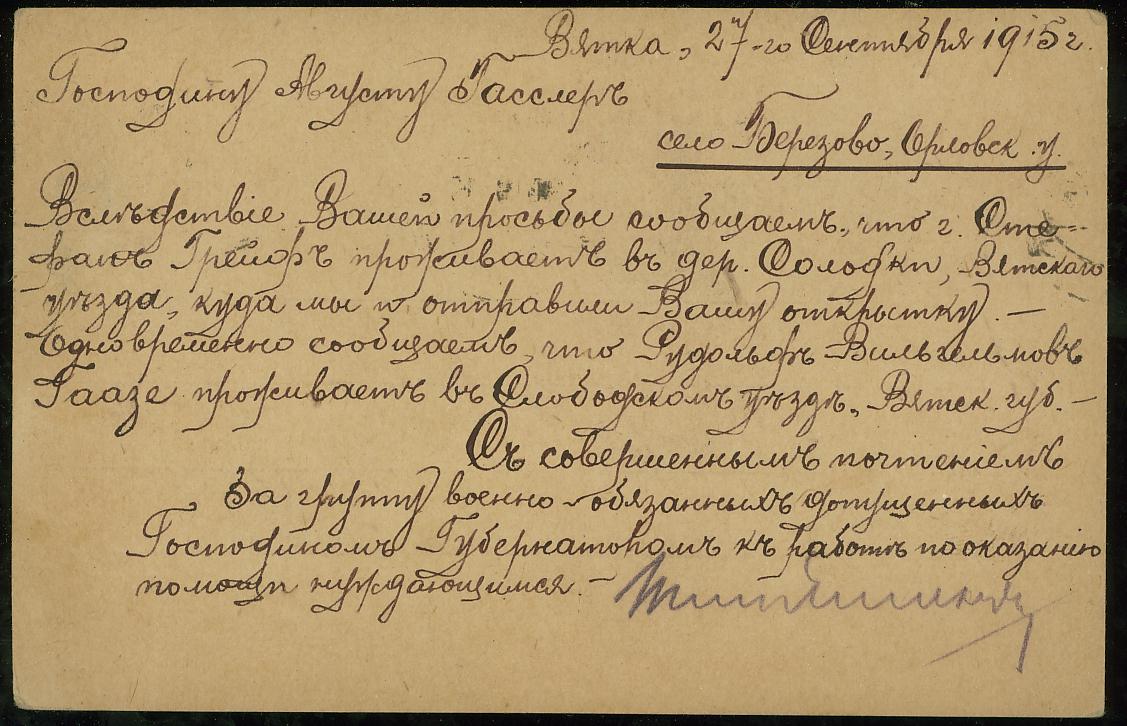 Вятка, 27-го Сентября 1915 г.
Господину Августу Гасслеръ
село Березово, Орловск. у.
Вслѣдствіе Вашей просьбы сообщаемъ, что г. Сте-
фанъ Грейфъ проживаетъ въ дер. Солодки, Вятскаго
уѣзда, куда мы и отправили Вашу открытку. —
Одновременно сообщаемъ, что Рудольфъ Вильгельмовъ
Гаазе проживаетъ въ Слободскомъ уѣздѣ, Вятск. губ. —
Съ совершеннымъ почтеніемъ
За группу военно-обязанныхъ допущенныхъ
Господиномъ Губернаторомъ къ работѣ по оказанію
помощи нуждающимся. —